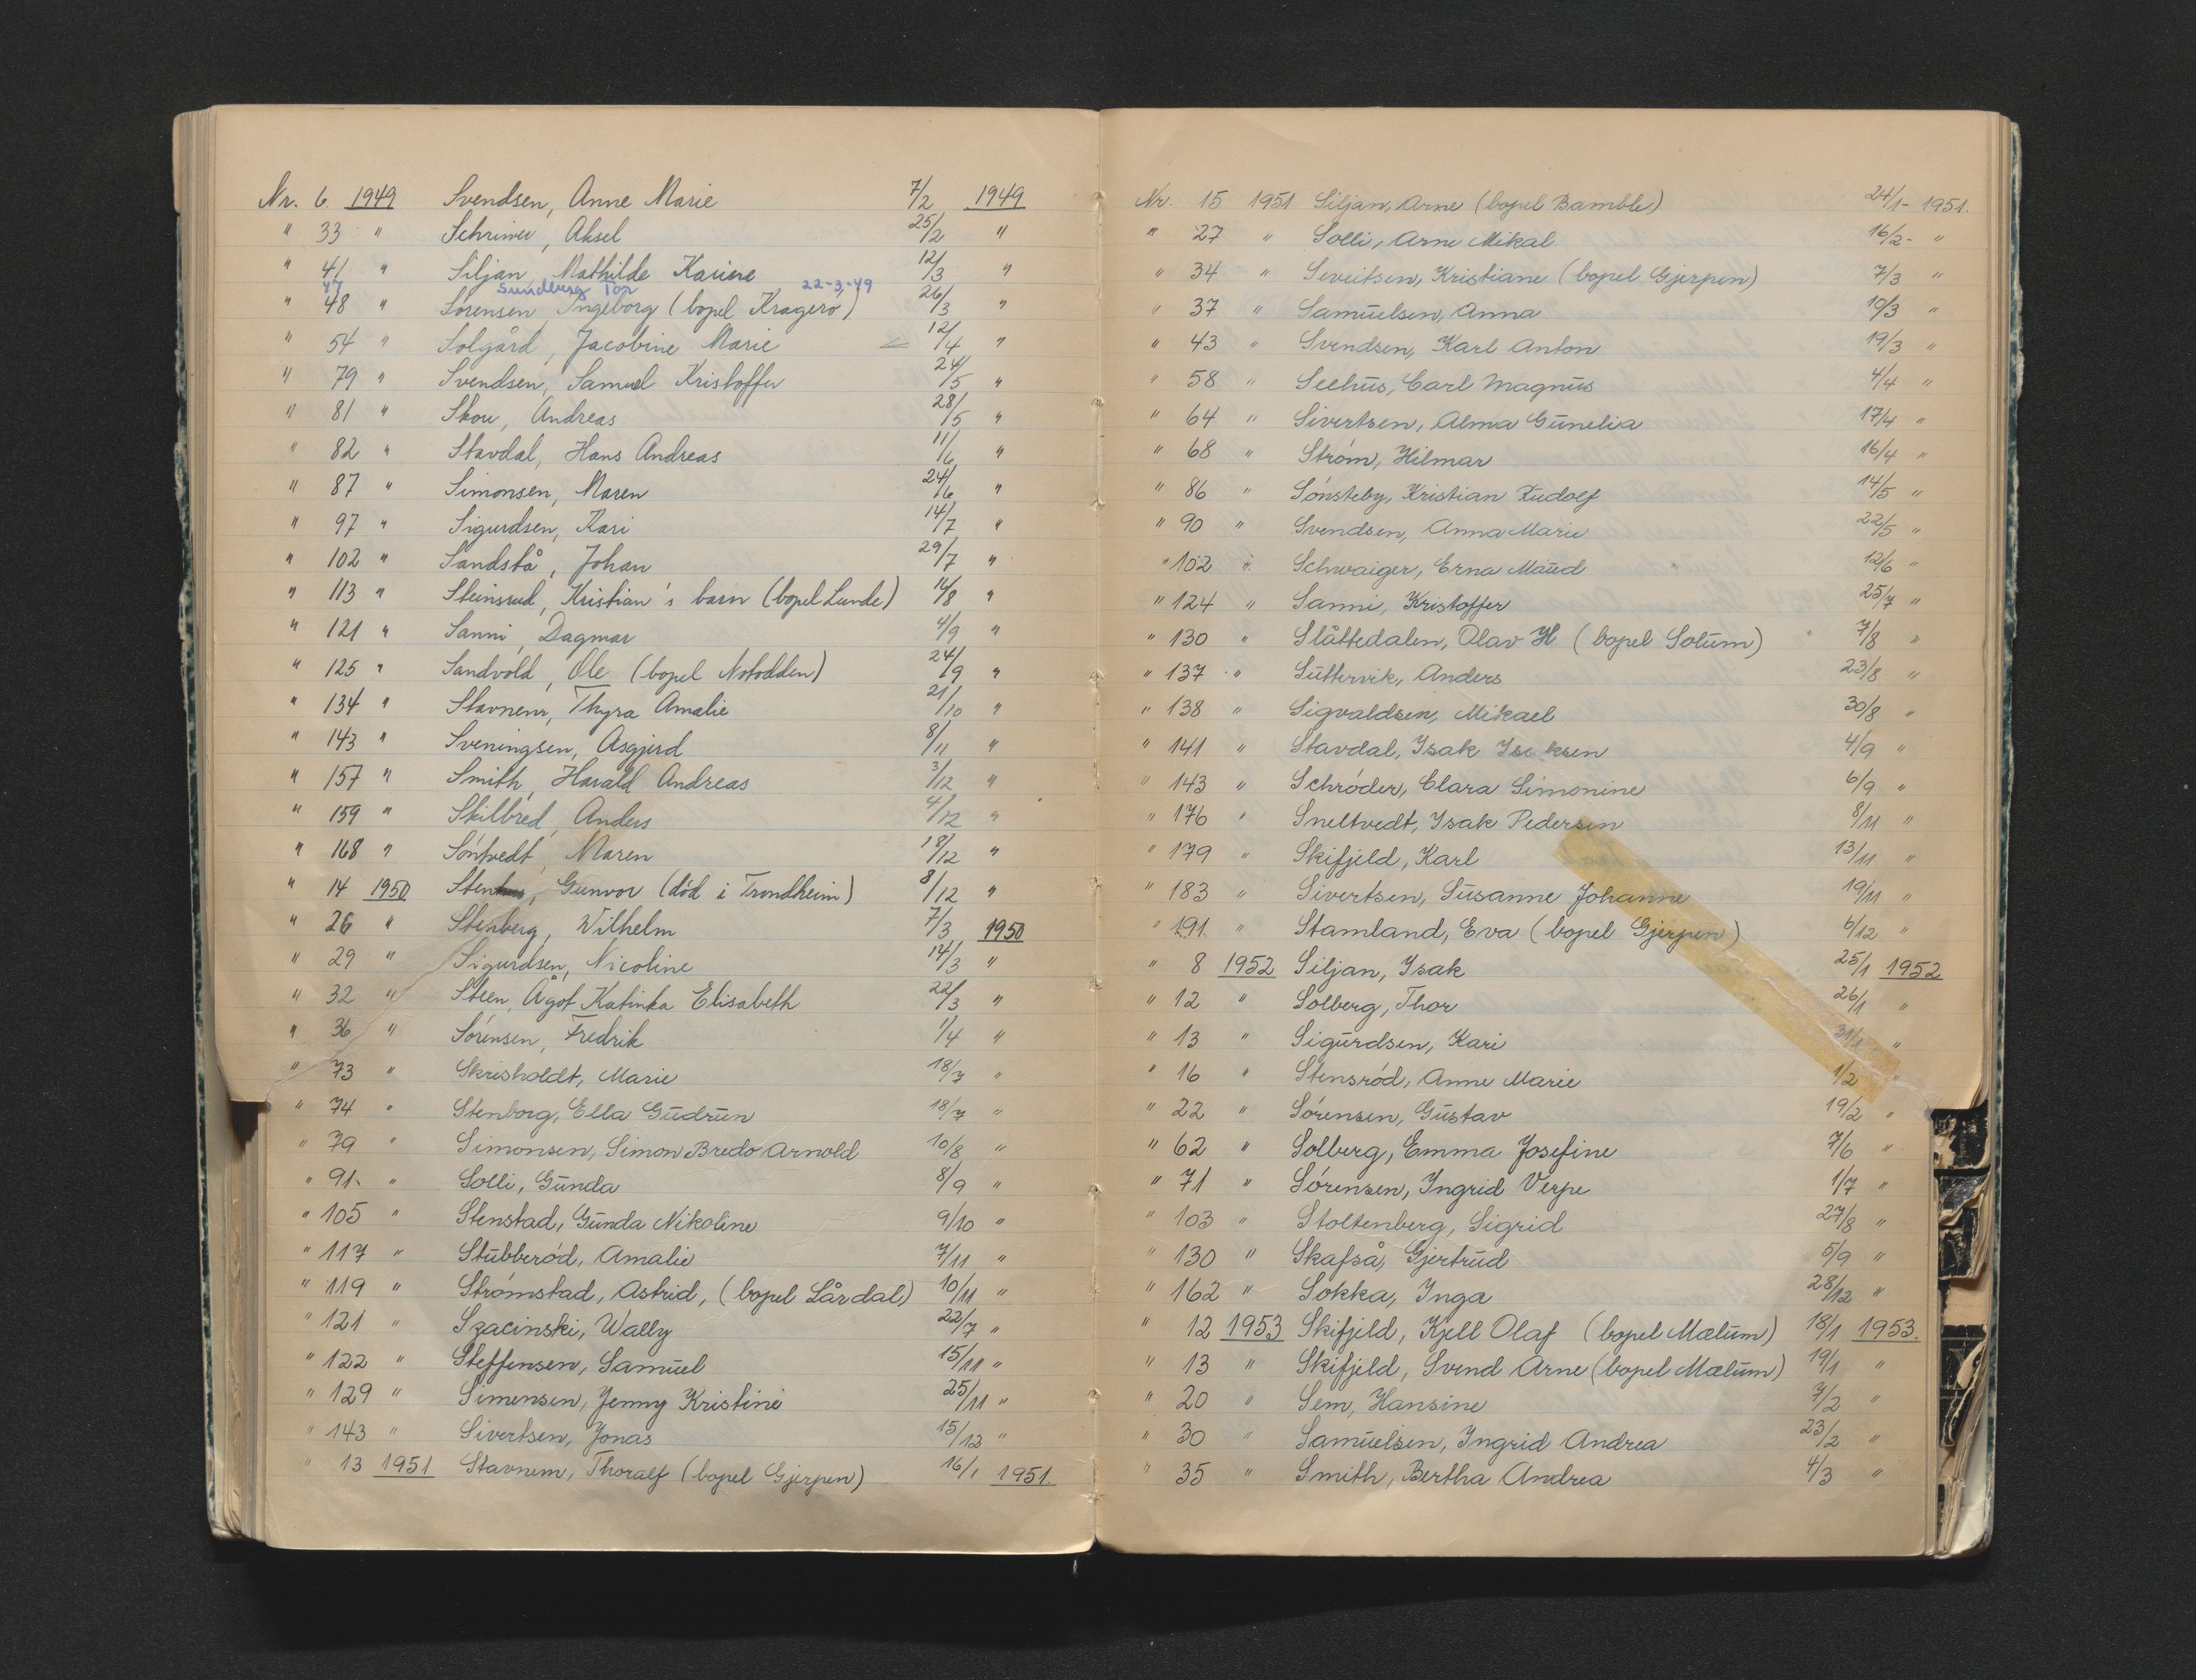 Nr. 6. 1949 Svendsen, Anne Marie 7/2 1949
" 33 " Schriwer, Aksel 25/2 "
" 41 " Siljan, Mathilde Karine 12/3 "
47 Sundberg Tor 22-3-49
" 48 " Sørensen, Ingeborg (bopel Kragerø) 26/3 "
" 54 " Solgård, Jacobine Marie 12/4 "
" 79 " Svendsen, Samuel Kristoffer 24/5 "
" 81 " Skou, Andreas 28/5 "
" 82 " Stavdal, Hans Andreas 11/6 "
" 87 " Simonsen, Maren 24/6 "
" 97 " Sigurdsen, Kari 14/7 "
" 102 " Sandstå, Johan 29/7 "
" 113 " Steinsrud, Kristian's barn (bopel Lunde) 14/8 "
" 121 " Sanni, Dagmar 4/9 "
" 125 " Sandvold, Ole (bopel Notodden) 24/9 "
" 134 " Stavnem, Thyra Amalie 21/10 "
" 143 " Sveningsen, Asgjerd 8/11 "
" 157 " Smith, Harald Andreas 3/12 "
" 159 " Skilbred, Anders 4/12 "
" 168 " Søntvedt, Maren 18/12 "
" 14 1950 Sten, Gunvor (død i Trondheim) 8/12 "
" 26 " Stenberg, Wilhelm 7/3 1950
" 29 " Sigurdsen, Nicoline 14/3 "
" 32 " Steen, Ågot Katinka Elisabeth 22/3 "
" 36 " Sørensen, Fredrik 1/4 "
" 73 " Skrisholdt, Marie 18/7 "
" 74 " Stenborg, Ella Gudrun 18/7 "
" 79 " Simonsen, Simon Bredo Arnold 10/8 "
" 91 " Solli, Gunda 8/9 "
" 105 " Stenstad, Gunda Nikoline 9/10 "
" 117 " Stubberød, Amalie 7/11 "
" 119 " Strømstad, Astrid, (bopel Lårdal) 10/11 "
" 121 " Szacinski, Wally 22/7 "
" 122 " Steffensen, Samuel 15/11 "
" 129 " Simensen, Jenny Kristine 25/11 "
" 143 " Sivertsen, Jonas 15/12 "
" 13 1951 Stavnem, Thoralf (bopel Gjerpen) 16/1 1951.
Nr. 15 1951 Siljan, Arne (bopel Bamble) 24/1 - 1951.
" 27 " Solli, Arne Mikal 16/2 - "
" 34 " Seveitsen, Kristiane (bopel Gjerpen) 7/3 "
" 37 " Samuelsen, Anna 10/3 "
" 43 " Svendsen, Karl Anton 19/3 "
" 58 " Seehus, Carl Magnus 4/4 "
" 64 " Sivertsen, Alma Gunelia 17/4 "
" 68 " Strøm, Hilmar 16/4 "
" 86 " Sønsteby, Kristian Rudolf 14/5 "
" 90 " Svendsen, Anna Marie 22/5 "
" 102 " Schwaiger, Erna Maud 12/6 "
" 124 " Sanni, Kristoffer 25/7 "
" 130 " Slåttedalen, Olav H. (bopel Solum) 7/8 "
" 137 " Suttervik, Anders 23/8 "
" 138 " Sigvaldsen, Mikael 30/8 "
" 141 " Stavdal, Isak Isaksen 4/9 "
" 143 " Schrøder, Clara Simonine 6/9 "
" 176 " Sneltvedt, Isak Pedersen 8/11 "
" 179 " Skifjeld, Karl 13/11 "
" 183 " Sivertsen, Susanne Johanne 19/11 "
" 191. " Stamland, Eva (bopel Gjerpen) 6/12 "
" 8 1952 Siljan, Isak 25/1 1952
" 12 " Solberg, Thor 26/1 "
" 13 " Sigurdsen, Kari 31/1 "
" 16 " Stensrød, Anne Marie 1/2 "
" 22 " Sørensen, Gustav 19/2 "
" 62 " Solberg, Emma Josefine 7/6 "
" 71 " Sørensen, Ingrid Verpe 1/7 "
" 103 " Stoltenberg, Sigrid 27/8 "
" 130 " Skafså, Gjertrud 5/9 "
" 162 " Sokka, Inga 28/12 "
" 12 1953 Skifjeld, Kjell Olaf (bopel Mælum) 18/1 1953.
" 13 " Skifjeld, Svend Arne (bopel Mælum) 19/1 "
" 20 " Sem, Hansine 7/2 "
" 30 " Samuelsen, Ingrid Andrea 23/2 "
" 35 " Smith, Bertha Andrea 4/3 "